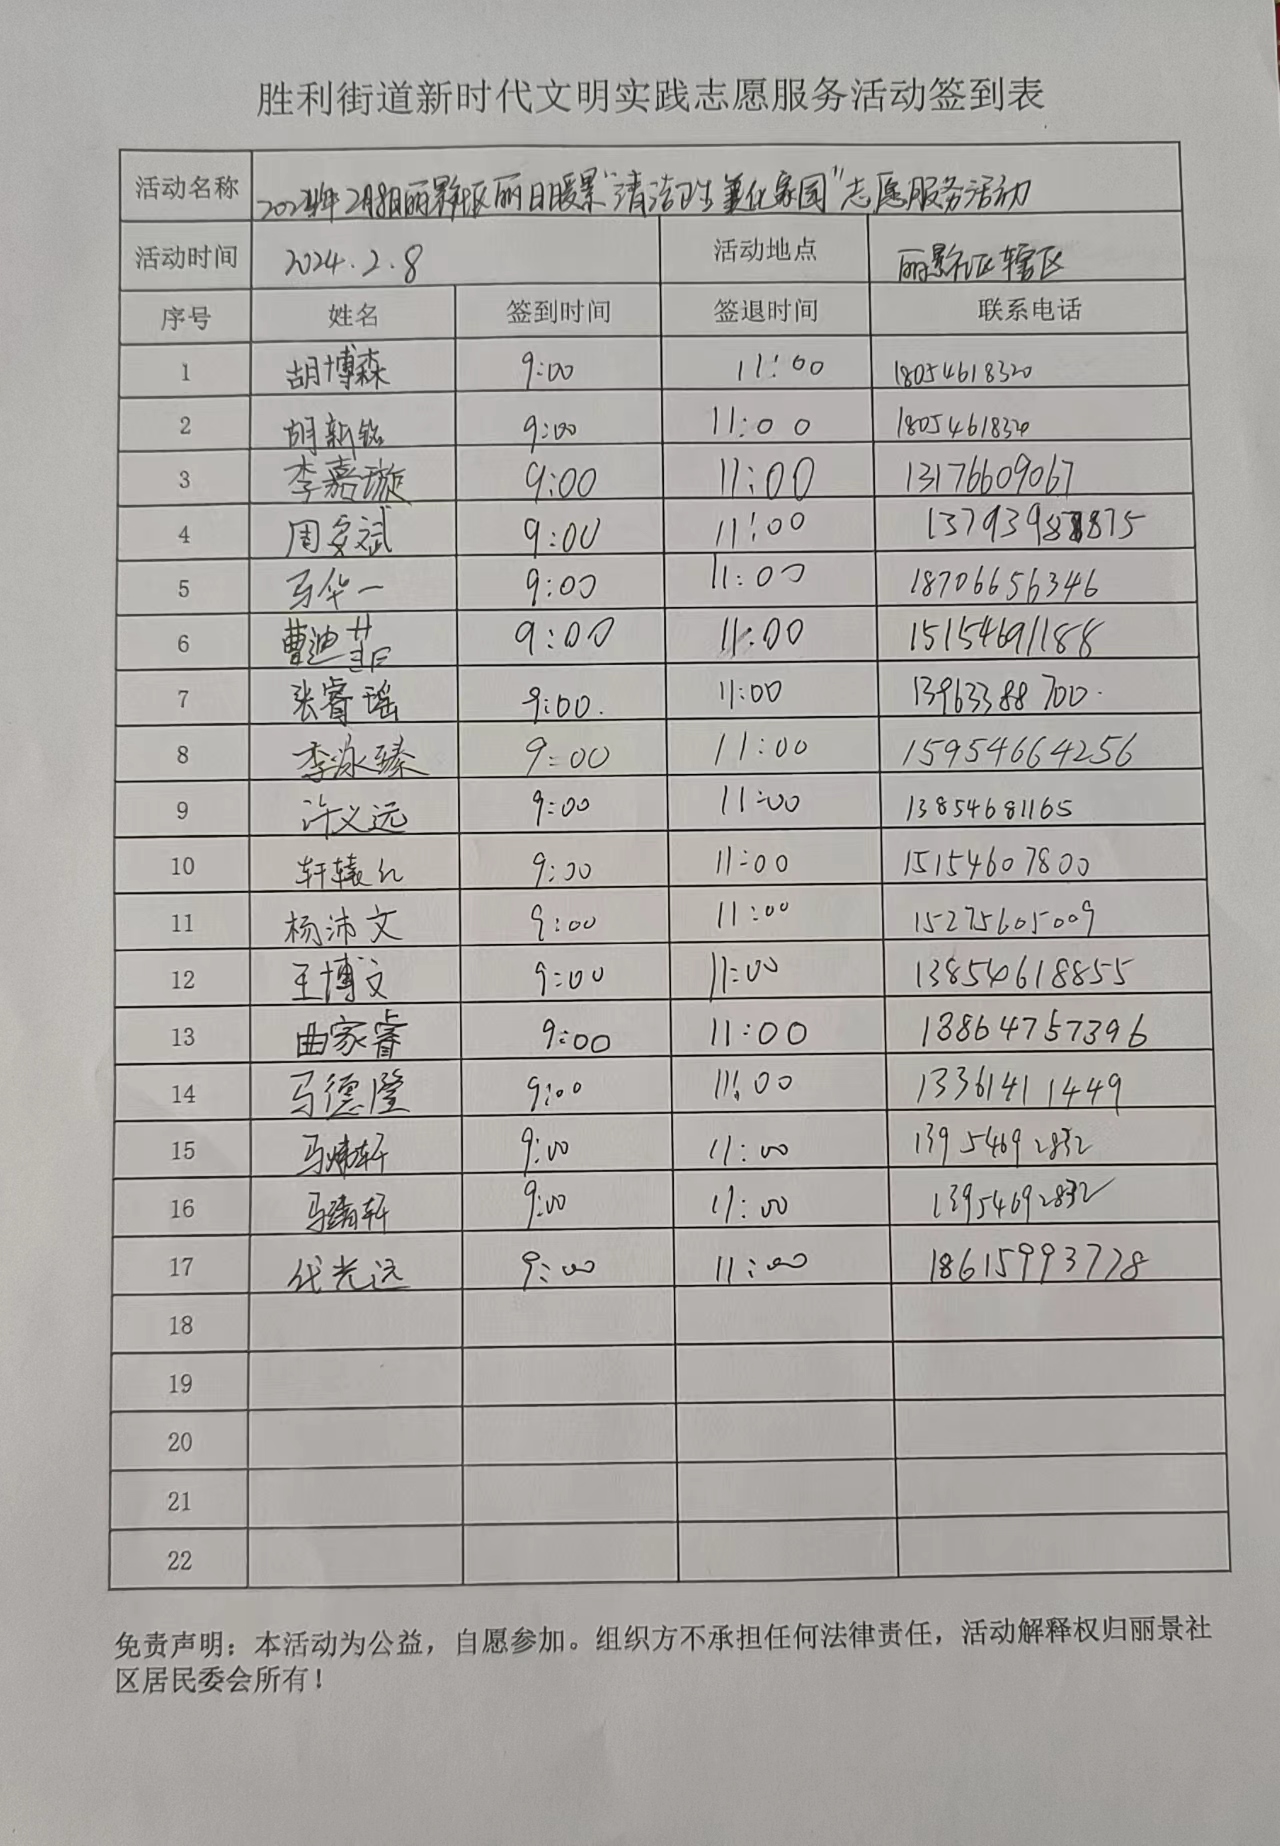 胜利街道新时代文明实践志愿服务活动签到表
活动名称 2024年2月8日丽景社区丽日暖景"清洁卫生 美化家园"志愿服务活动
活动时间 2024.2.8 活动地点 丽景社区辖区
序号 姓名 签到时间 签退时间 联系电话
1 胡博森 9:00 11:00 18054618320
2 胡新铭 9:00 11:00 18054618320
3 李嘉璇 9:00 11:00 13176609067
4 周文斌 9:00 11:00
5 马华一 9:00 11:00 18706656346
6 曹迪菲 9:00 11:00 15154691188
7 张睿瑶 9:00. 11:00 13963388700.
8 李泳臻 9:00 11:00 15954664256
9 许义远 9:00 11:00 13854681165
10 轩辕 9:00 11:00 15154607800
11 杨沛文 9:00 11:00 15275605009
12 王博文 9:00 11:00 13854618855
13 曲家睿 9:00 11:00 13864757396
14 马德隆 9:00 11:00 13361411449
15 马 轩 9:00 11:00 13954692832
16 马 轩 9:00 11:00 13954692832
17 代光远 9:00 11:00 18615993778
18
19
20
21
22
免责声明：本活动为公益，自愿参加。组织方不承担任何法律责任，活动解释权归丽景社
区居民委会所有！